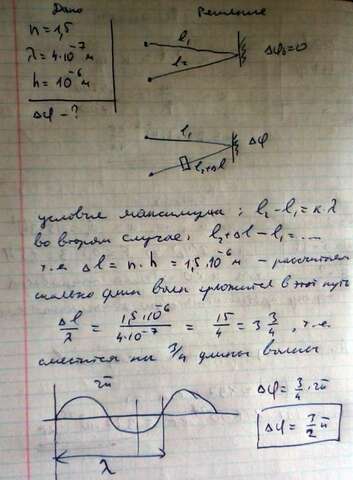 Дано
Решение
n = 1,5
λ = 4·10⁻⁷ м
h = 10⁻⁶ м
Δφ - ?
l₁
l₂
Δφ₀ = 0
l₁
l₂+Δl
Δφ
условие максимума: l₂ - l₁ = k·λ
во втором случае: l₂ + Δl - l₁ = ....
т.е Δl = n·h = 1,5·10⁻⁶ м - рассчитаем
сколько длин волн уложится в этот путь
Δl/λ = 1,5·10⁻⁶/4·10⁻⁷ = 15/4 = 3 3/4, т.е.
сместится на 3/4 длины волны
2π
λ
Δφ = 3/4·2π
Δφ = 3/2 π